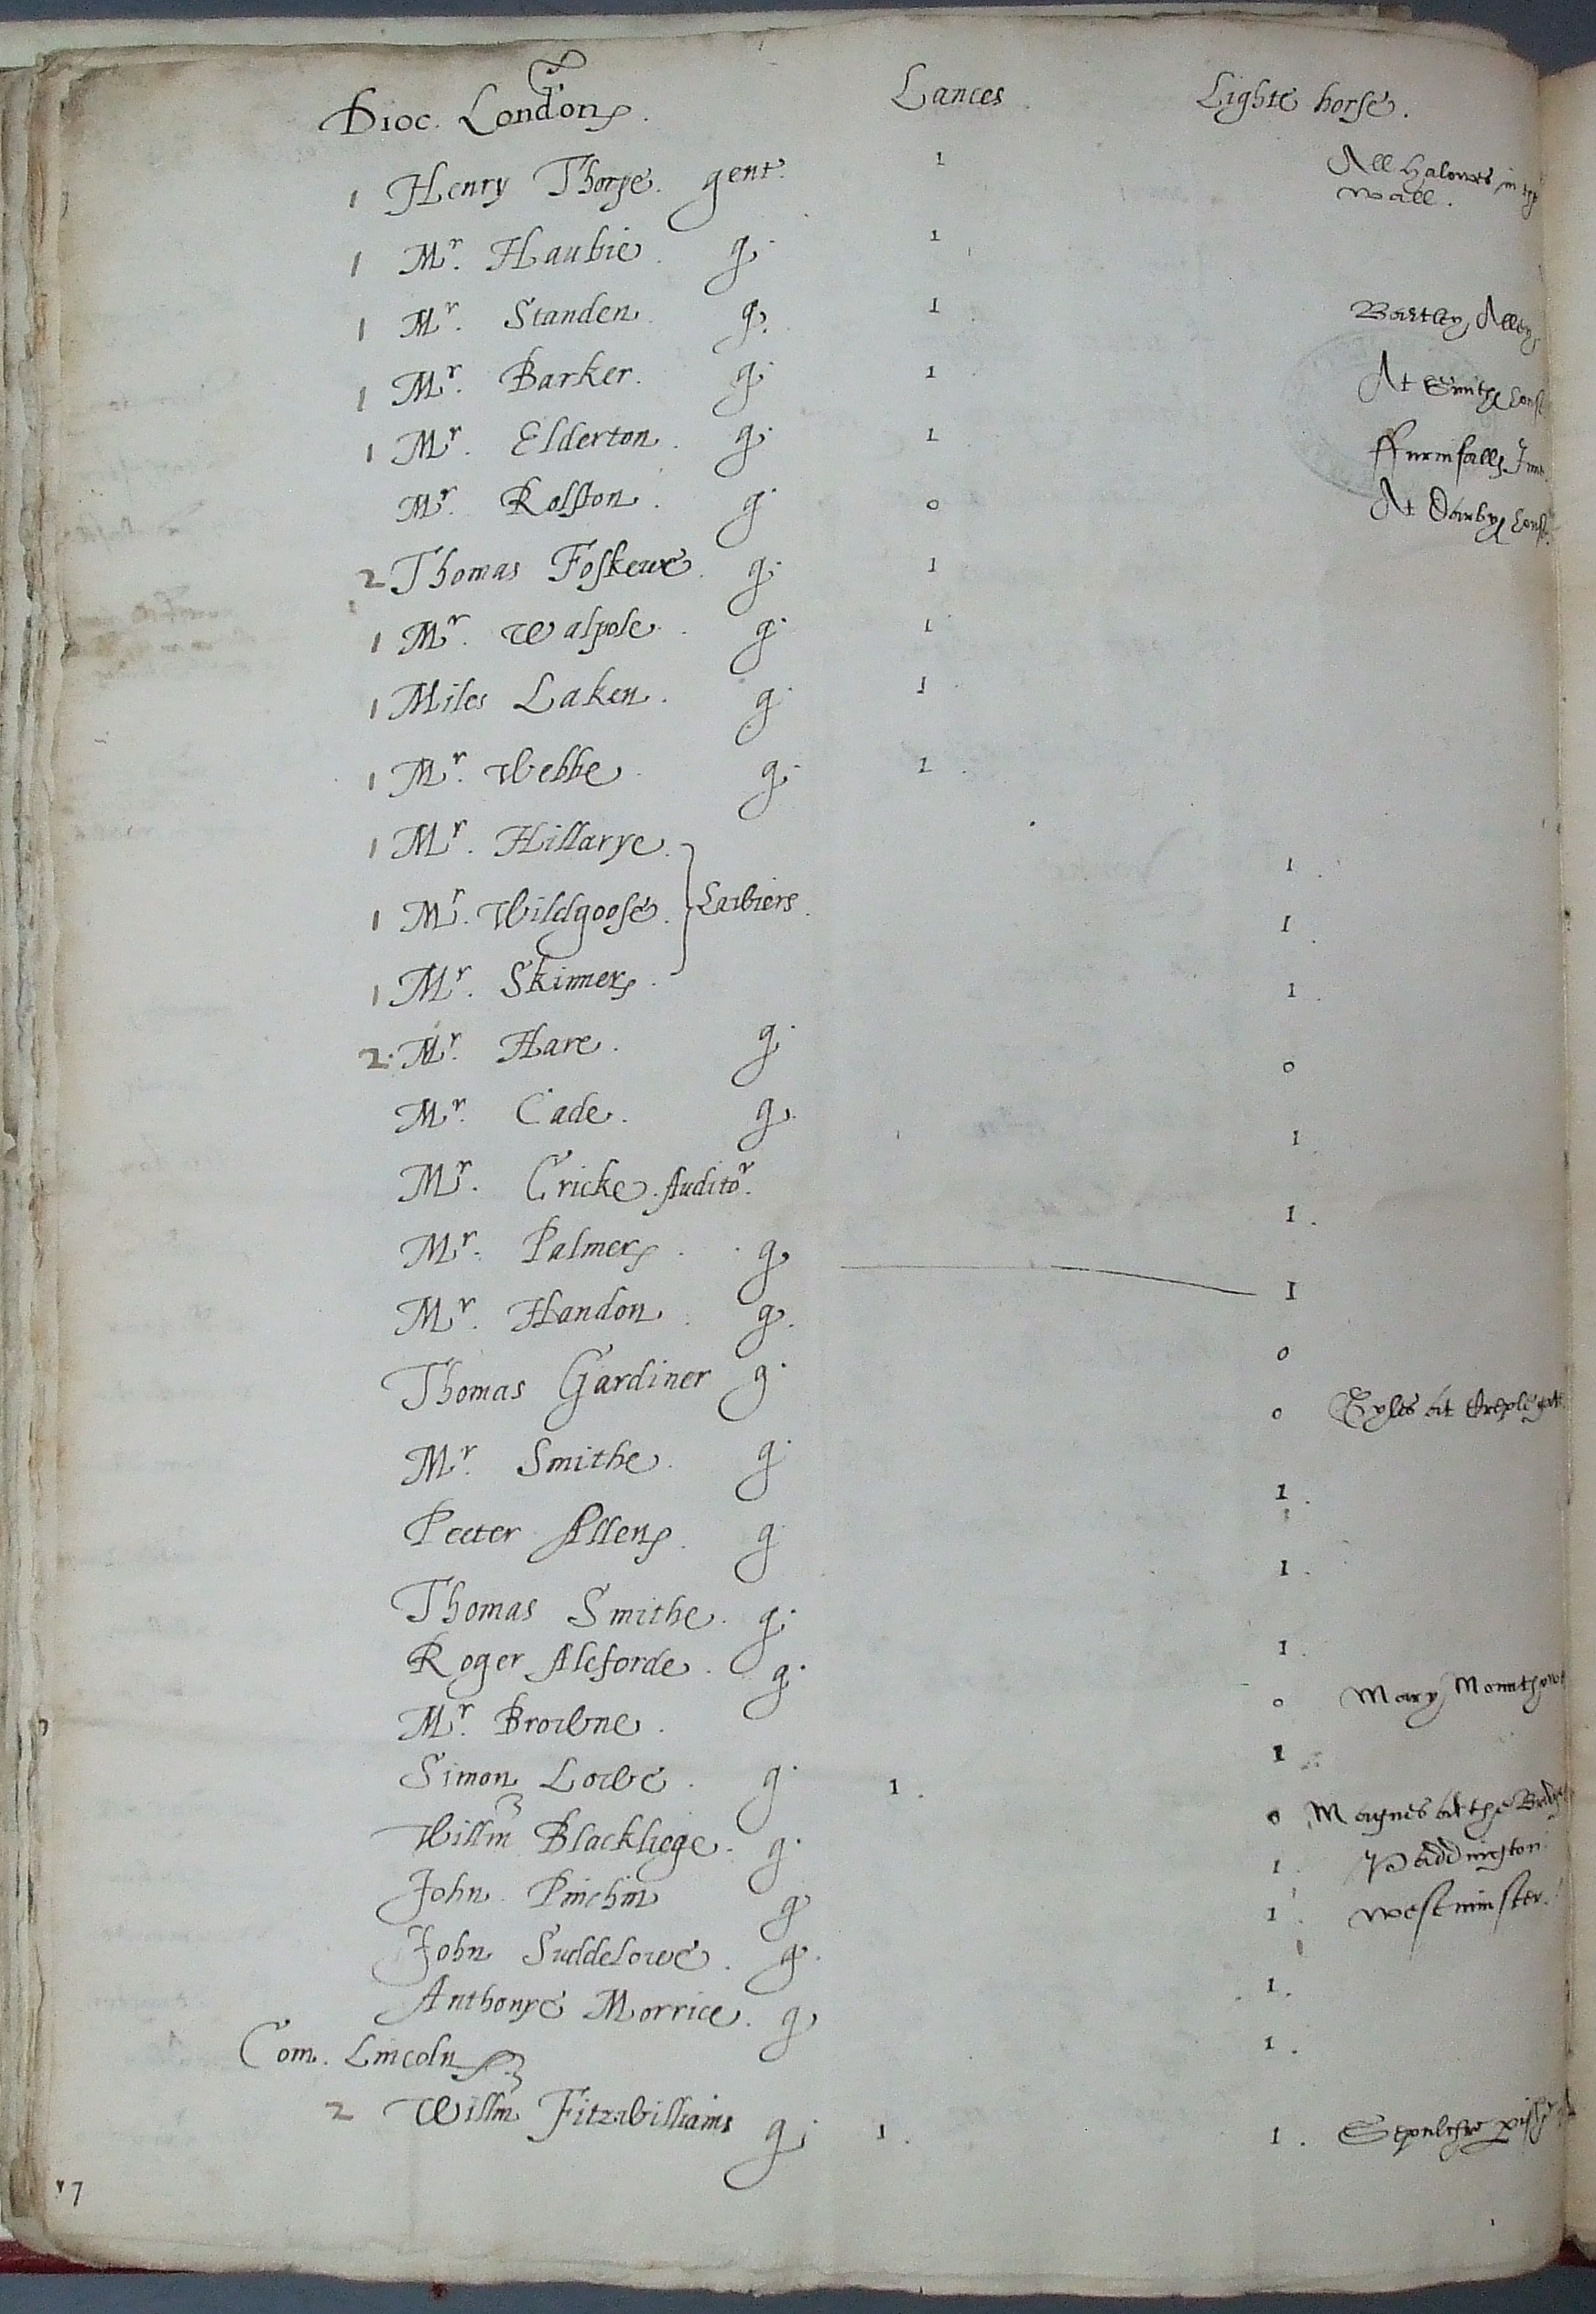 Dioc. London. Lances Lighte horse.
1 Henry Thorpe. gent. 1 All Halowes in the
wall.
1 Mr. Haubie. g. 1
1 Mr. Standen. g. 1 Alley
1 Mr. Barker. g. 1 At Smithes house
1 Mr. Elderton. g. 1 ffurnifalls Inne
Mr. Rolston. g. 0 At Darbys house
2 Thomas Foskewe. g. 1
1 Mr. Walpole. g. 1
1 Miles Laken. g. 1
1 Mr. Webbe. g. 1
1 Mr. Hillarye. 1
1 Mr. Wildgoose. Lawiers. 1
1 Mr. Skinner. 1
2. Mr. Hare. g. 0
Mr. Cade. g. 1
Mr. Cricke. Auditor. 1.
Mr. Palmer. g. 1
Mr. Handon. g. 0
Thomas Gardiner g. 0 Gyles at Creplegate
Mr. Smithe. g. 1.
Peeter Allen. g. 1.
Thomas Smithe. g. 1.
Roger Aleforde. g. 0 Mary Mounthawe
Mr. Browne. 1
Simon Lowe. g. 1. 0 Magnes at the Bridge
Willm Blackliege. g. 1. Paddington.
John Pinchin g. 1. Westminster.
John Suddelowe. g. 1.
Anthonye Morrice. g. 1.
Com. Lincoln
2 Willm Fitzwilliams g. 1. 1. Sepulchre
7